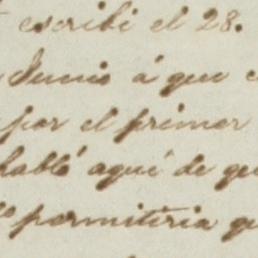 escribi el 28.
Junio á que
por el primer
habló aqué de
permitiria